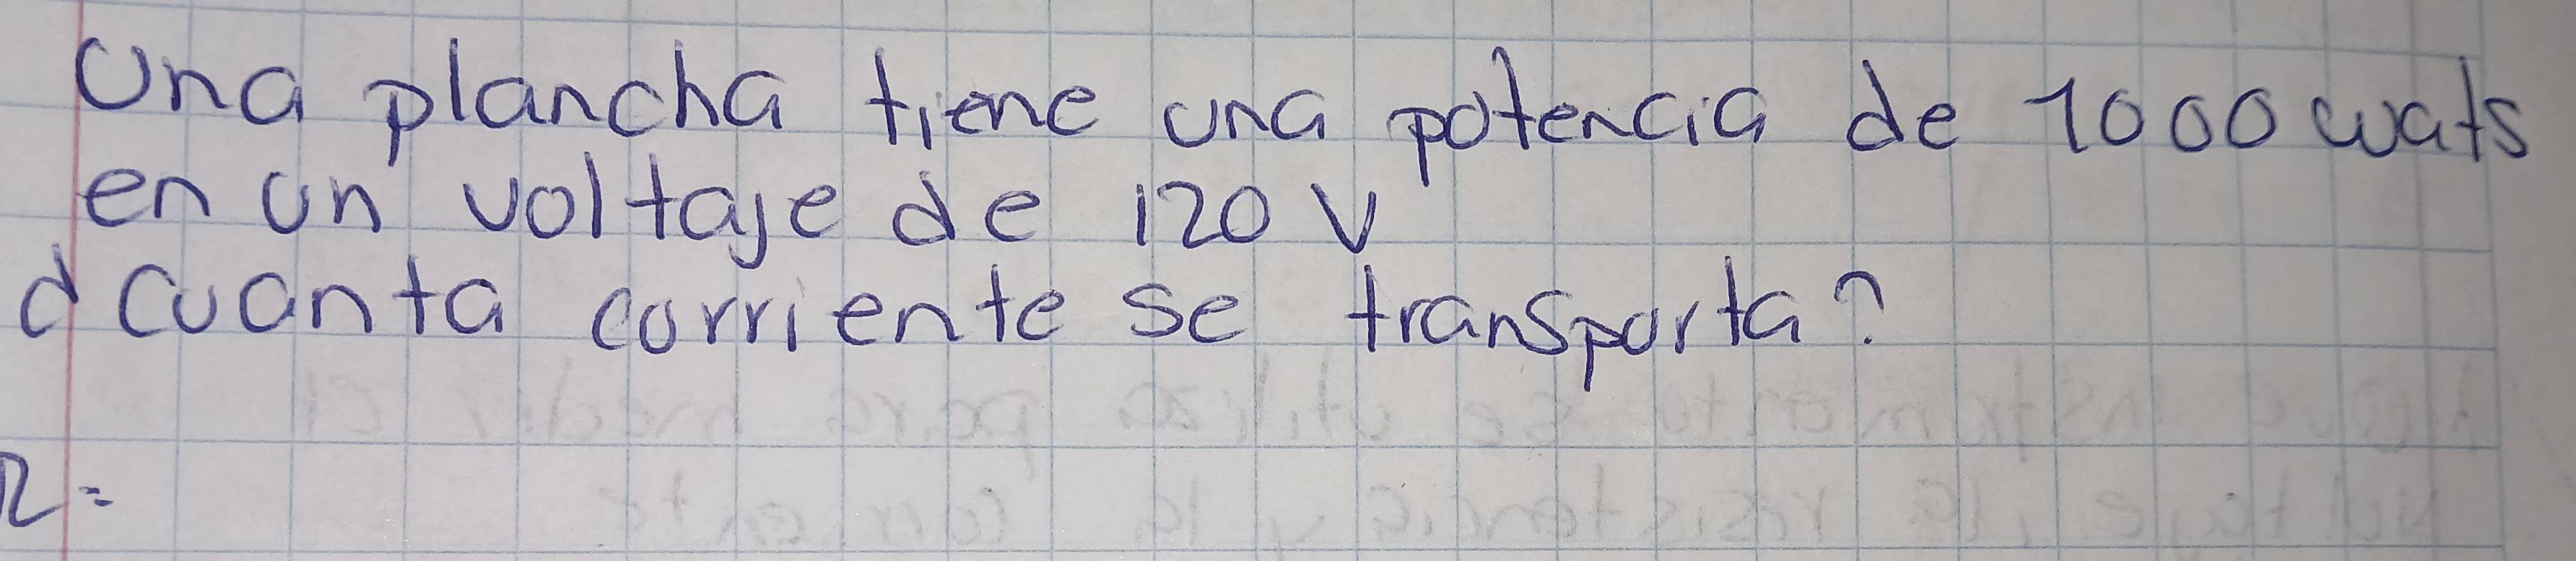 Una plancha tiene una potencia de 1000 wats
en un voltaje de 120 V
¿cuanta corriente se transporta?
R=